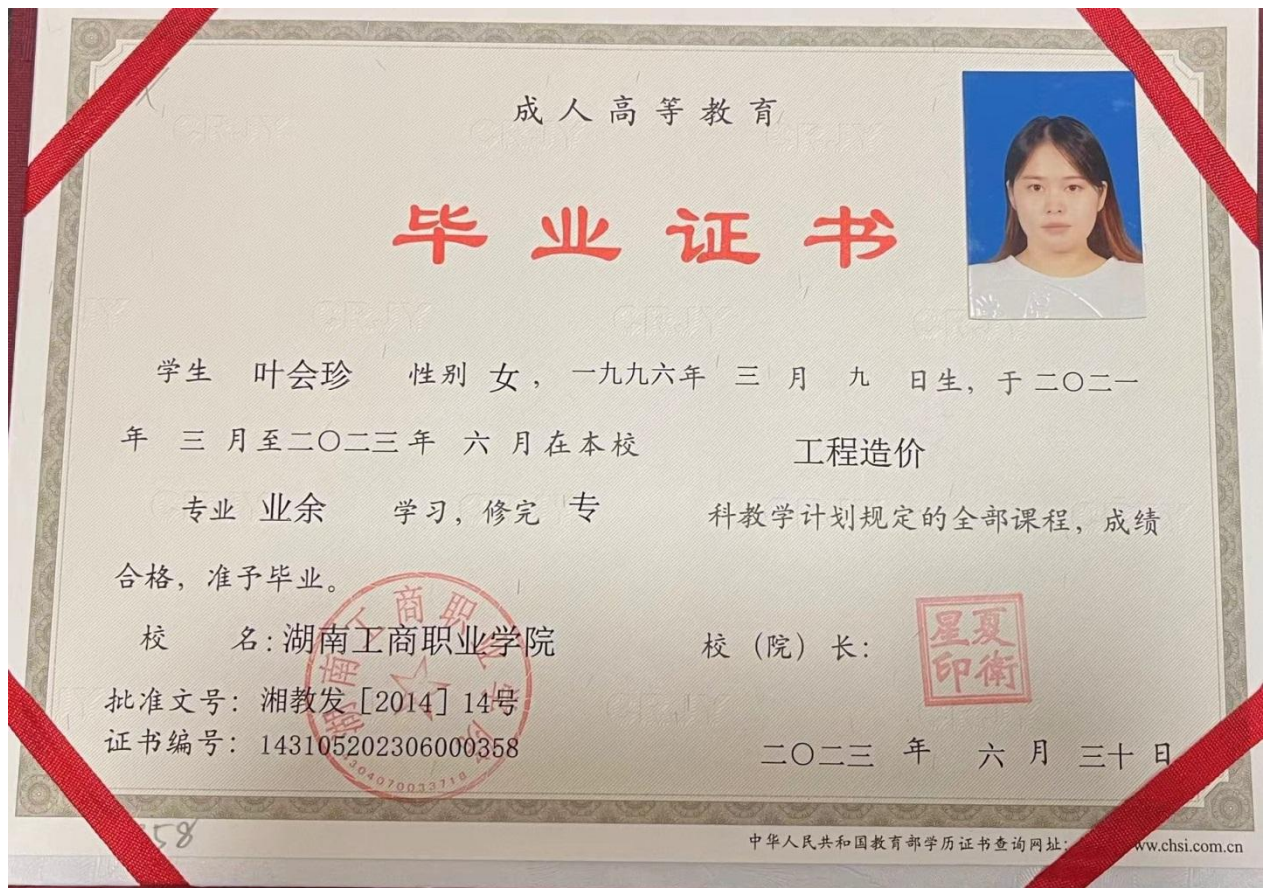 成人高等教育
毕业证书
学生 叶会珍 性别 女，一九九六年 三 月 九 日生，于二〇二一
年 三 月至二〇二三年 六 月在本校 工程造价
专业 业余 学习，修完 专 科教学计划规定的全部课程，成绩
合格，准予毕业。
校 名：湖南工商职业学院 校（院）长：
星夏
印衛
湖南工商职业学院
批准文号：湘教发［2014］14号
证书编号：143105202306000358
4304070033718
二〇二三 年 六 月 三十 日
58
中华人民共和国教育部学历证书查询网址：ww.chsi.com.cn
CRJY